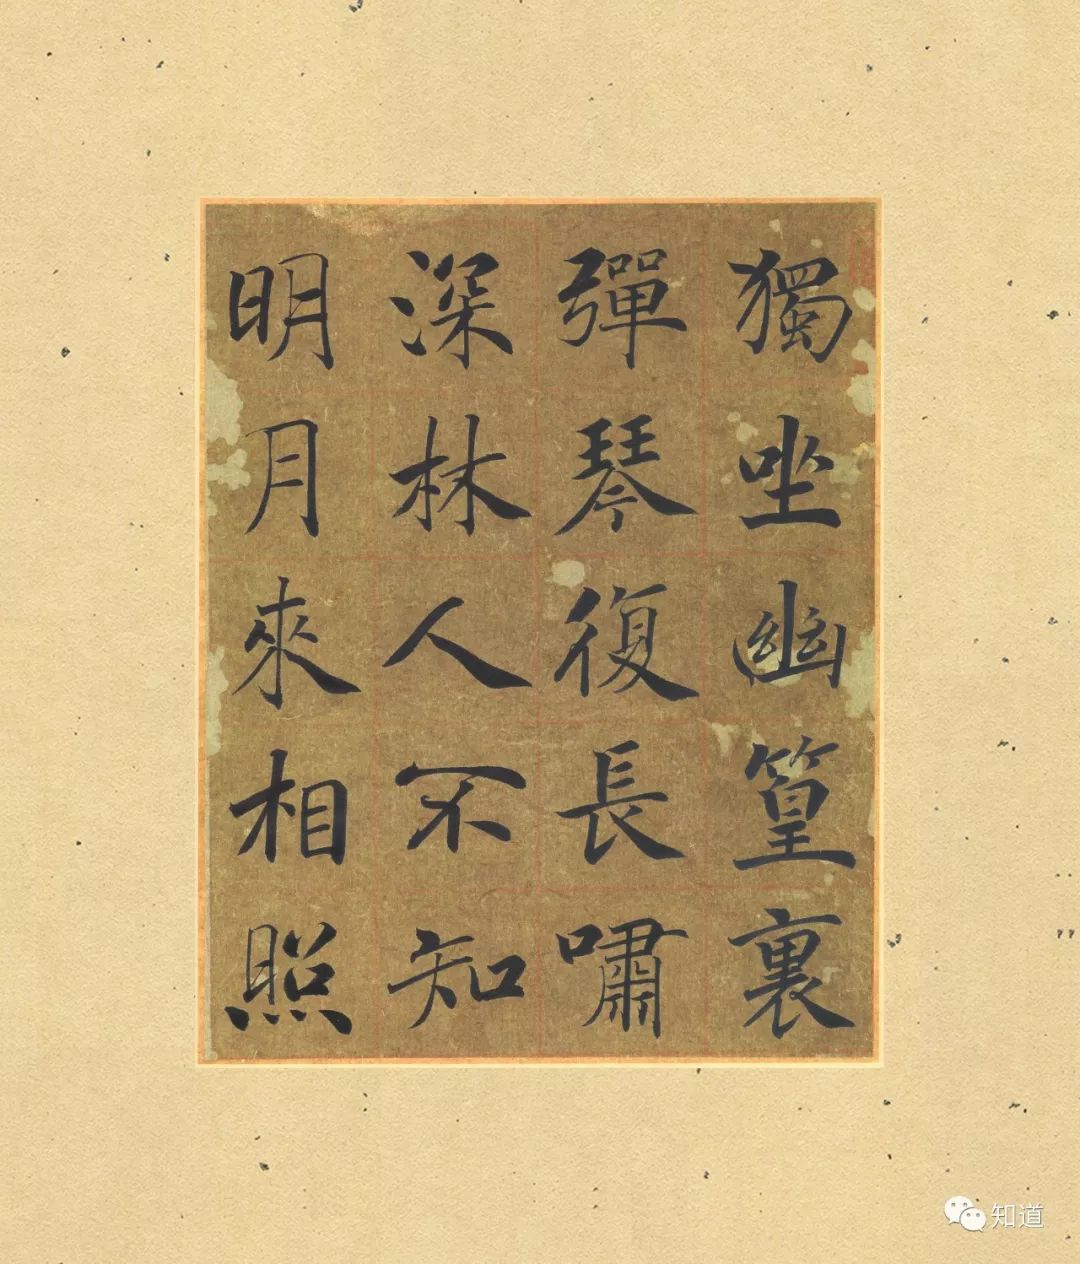 獨坐幽篁裏
彈琴復長嘯
深林人不知
明月來相照
知道